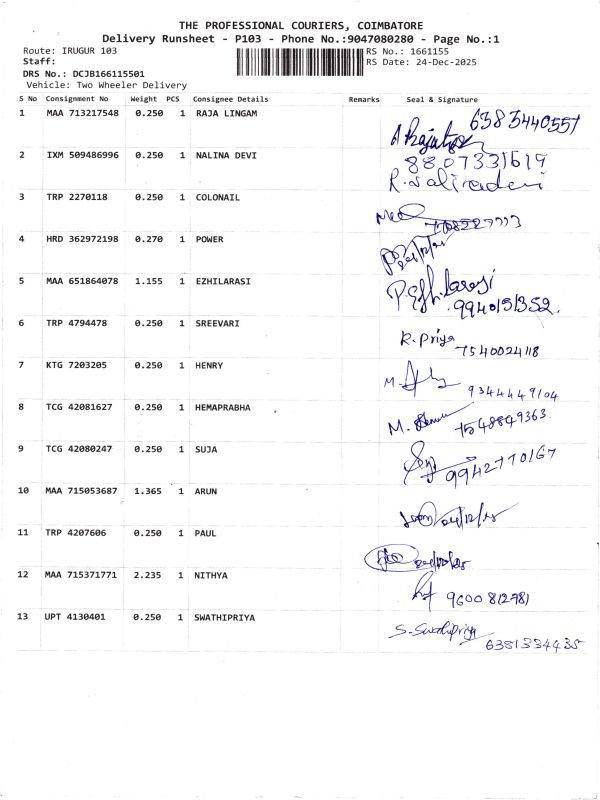 THE PROFESSIONAL COURIERS, COIMBATORE
Delivery Runsheet - P103 - Phone No.:9047080280 - Page No.:1
Route: IRUGUR 103 RS No.: 1661155
Staff: RS Date: 24-Dec-2025
DRS No.: DCJB166115501
Vehicle: Two Wheeler Delivery
S No Consignment No Weight PCS Consignee Details Remarks Seal & Signature
1 MAA 713217548 0.250 1 RAJA LINGAM 6383440557
2 IXM 509486996 0.250 1 NALINA DEVI 8807331619
R. Nalinadevi
3 TRP 2270118 0.250 1 COLONAIL
4 HRD 362972198 0.270 1 POWER
5 MAA 651864078 1.155 1 EZHILARASI P. Ezhilarasi
9940151352.
6 TRP 4794478 0.250 1 SREEVARI R. Priya
7540024118
7 KTG 7203205 0.250 1 HENRY M. 9344449104
8 TCG 42081627 0.250 1 HEMAPRABHA M. 7548849363
9 TCG 42080247 0.250 1 SUJA 9942770167
10 MAA 715053687 1.365 1 ARUN 24/12/25
11 TRP 4207606 0.250 1 PAUL
12 MAA 715371771 2.235 1 NITHYA 9600812781
13 UPT 4130401 0.250 1 SWATHIPRIYA S. Swathipriya
6381334435